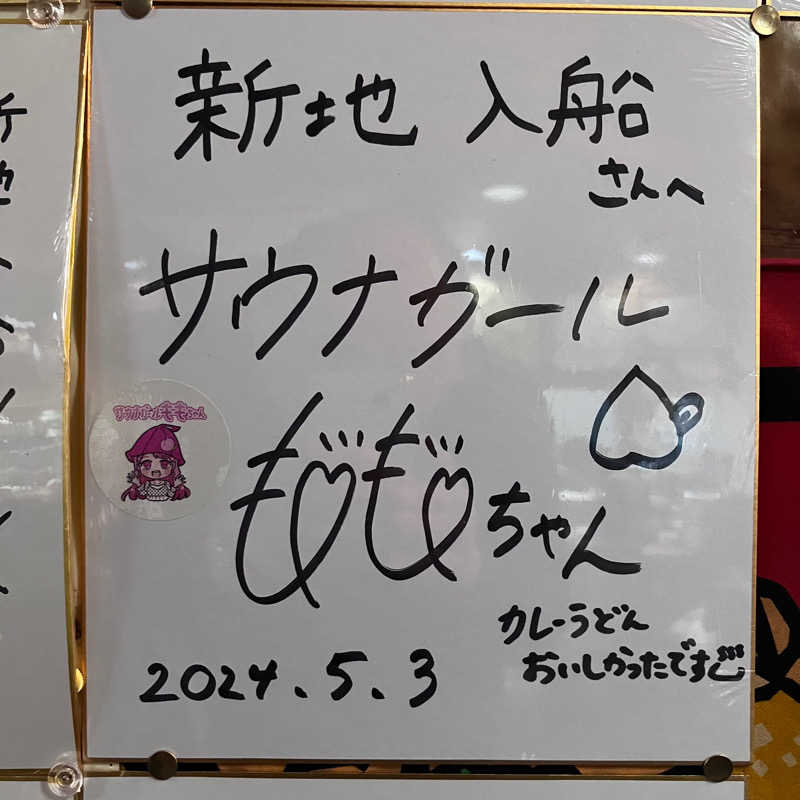 新地 入船
さんへ
サウナガール
ももちゃん
サウナガールももちゃん
カレーうどん
おいしかったです
2024.5.3